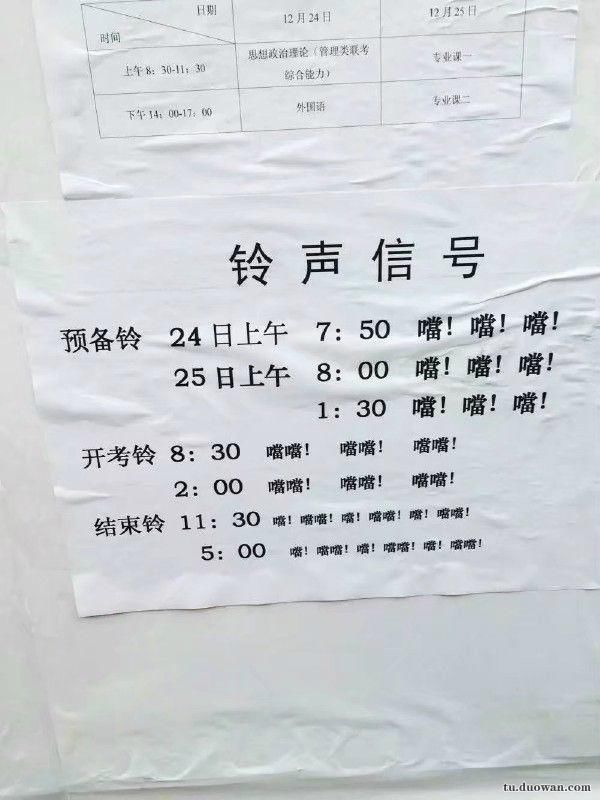 日期
12月24日
12月25日
时间
上午8：30-11：30
思想政治理论（管理类联考
综合能力）
专业课一
下午14：00-17：00
外国语
专业课二
铃声信号
预备铃 24日上午 7：50 噹！噹！噹！
25日上午 8：00 噹！噹！噹！
1：30 噹！噹！噹！
开考铃 8：30 噹噹！ 噹噹！ 噹噹！
2：00 噹噹！ 噹噹！ 噹噹！
结束铃 11：30 噹！噹噹！噹！噹噹！噹！噹噹！
5：00 噹！噹噹！噹！噹噹！噹！噹噹！
tu.duowan.com